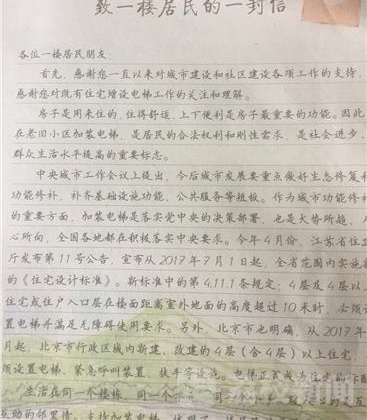 致一楼居民的一封信
各位一楼居民朋友:
首先,感谢您一直以来对城市建设和社区建设各项工作的支持,
感谢您对既有住宅增设电梯工作的关注和理解。
房子是用来住的,住得舒适、上下便利是房子最重要的功能。因此
在老旧小区加装电梯,是居民的合法权利和刚性需求,是社会进步、
群众生活水平提高的重要标志。
中央城市工作会议上提出,今后城市发展要重点做好生态修复和
功能修补,补齐基础设施功能、公共服务等短板。作为城市功能修补
的重要方面,加装电梯是落实党中央的决策部署,也是大势所趋、人
心所向,全国各地都在积极落实中央要求。今年4月份,江苏省住建
厅发布第11号公告,宣布从2017年7月1起,全省范围内实施新
的《住宅设计标准》。新标准中的4.11.1条规定:4层及4层以
住宅或住户入口层在楼面距离室外地面的高度超过10米时,必须设
置电梯并满足无障碍使用要求。另外,北京市也明确,从2017年
月起,北京市行政区域内新建、改建的4层(含4层)以上住宅,
须设置电梯、紧急呼叫装置、扶手等设施。电梯正式成为住宅的标配
生活在同一个楼栋、同一个
互助的邻里情。支持加装电梯